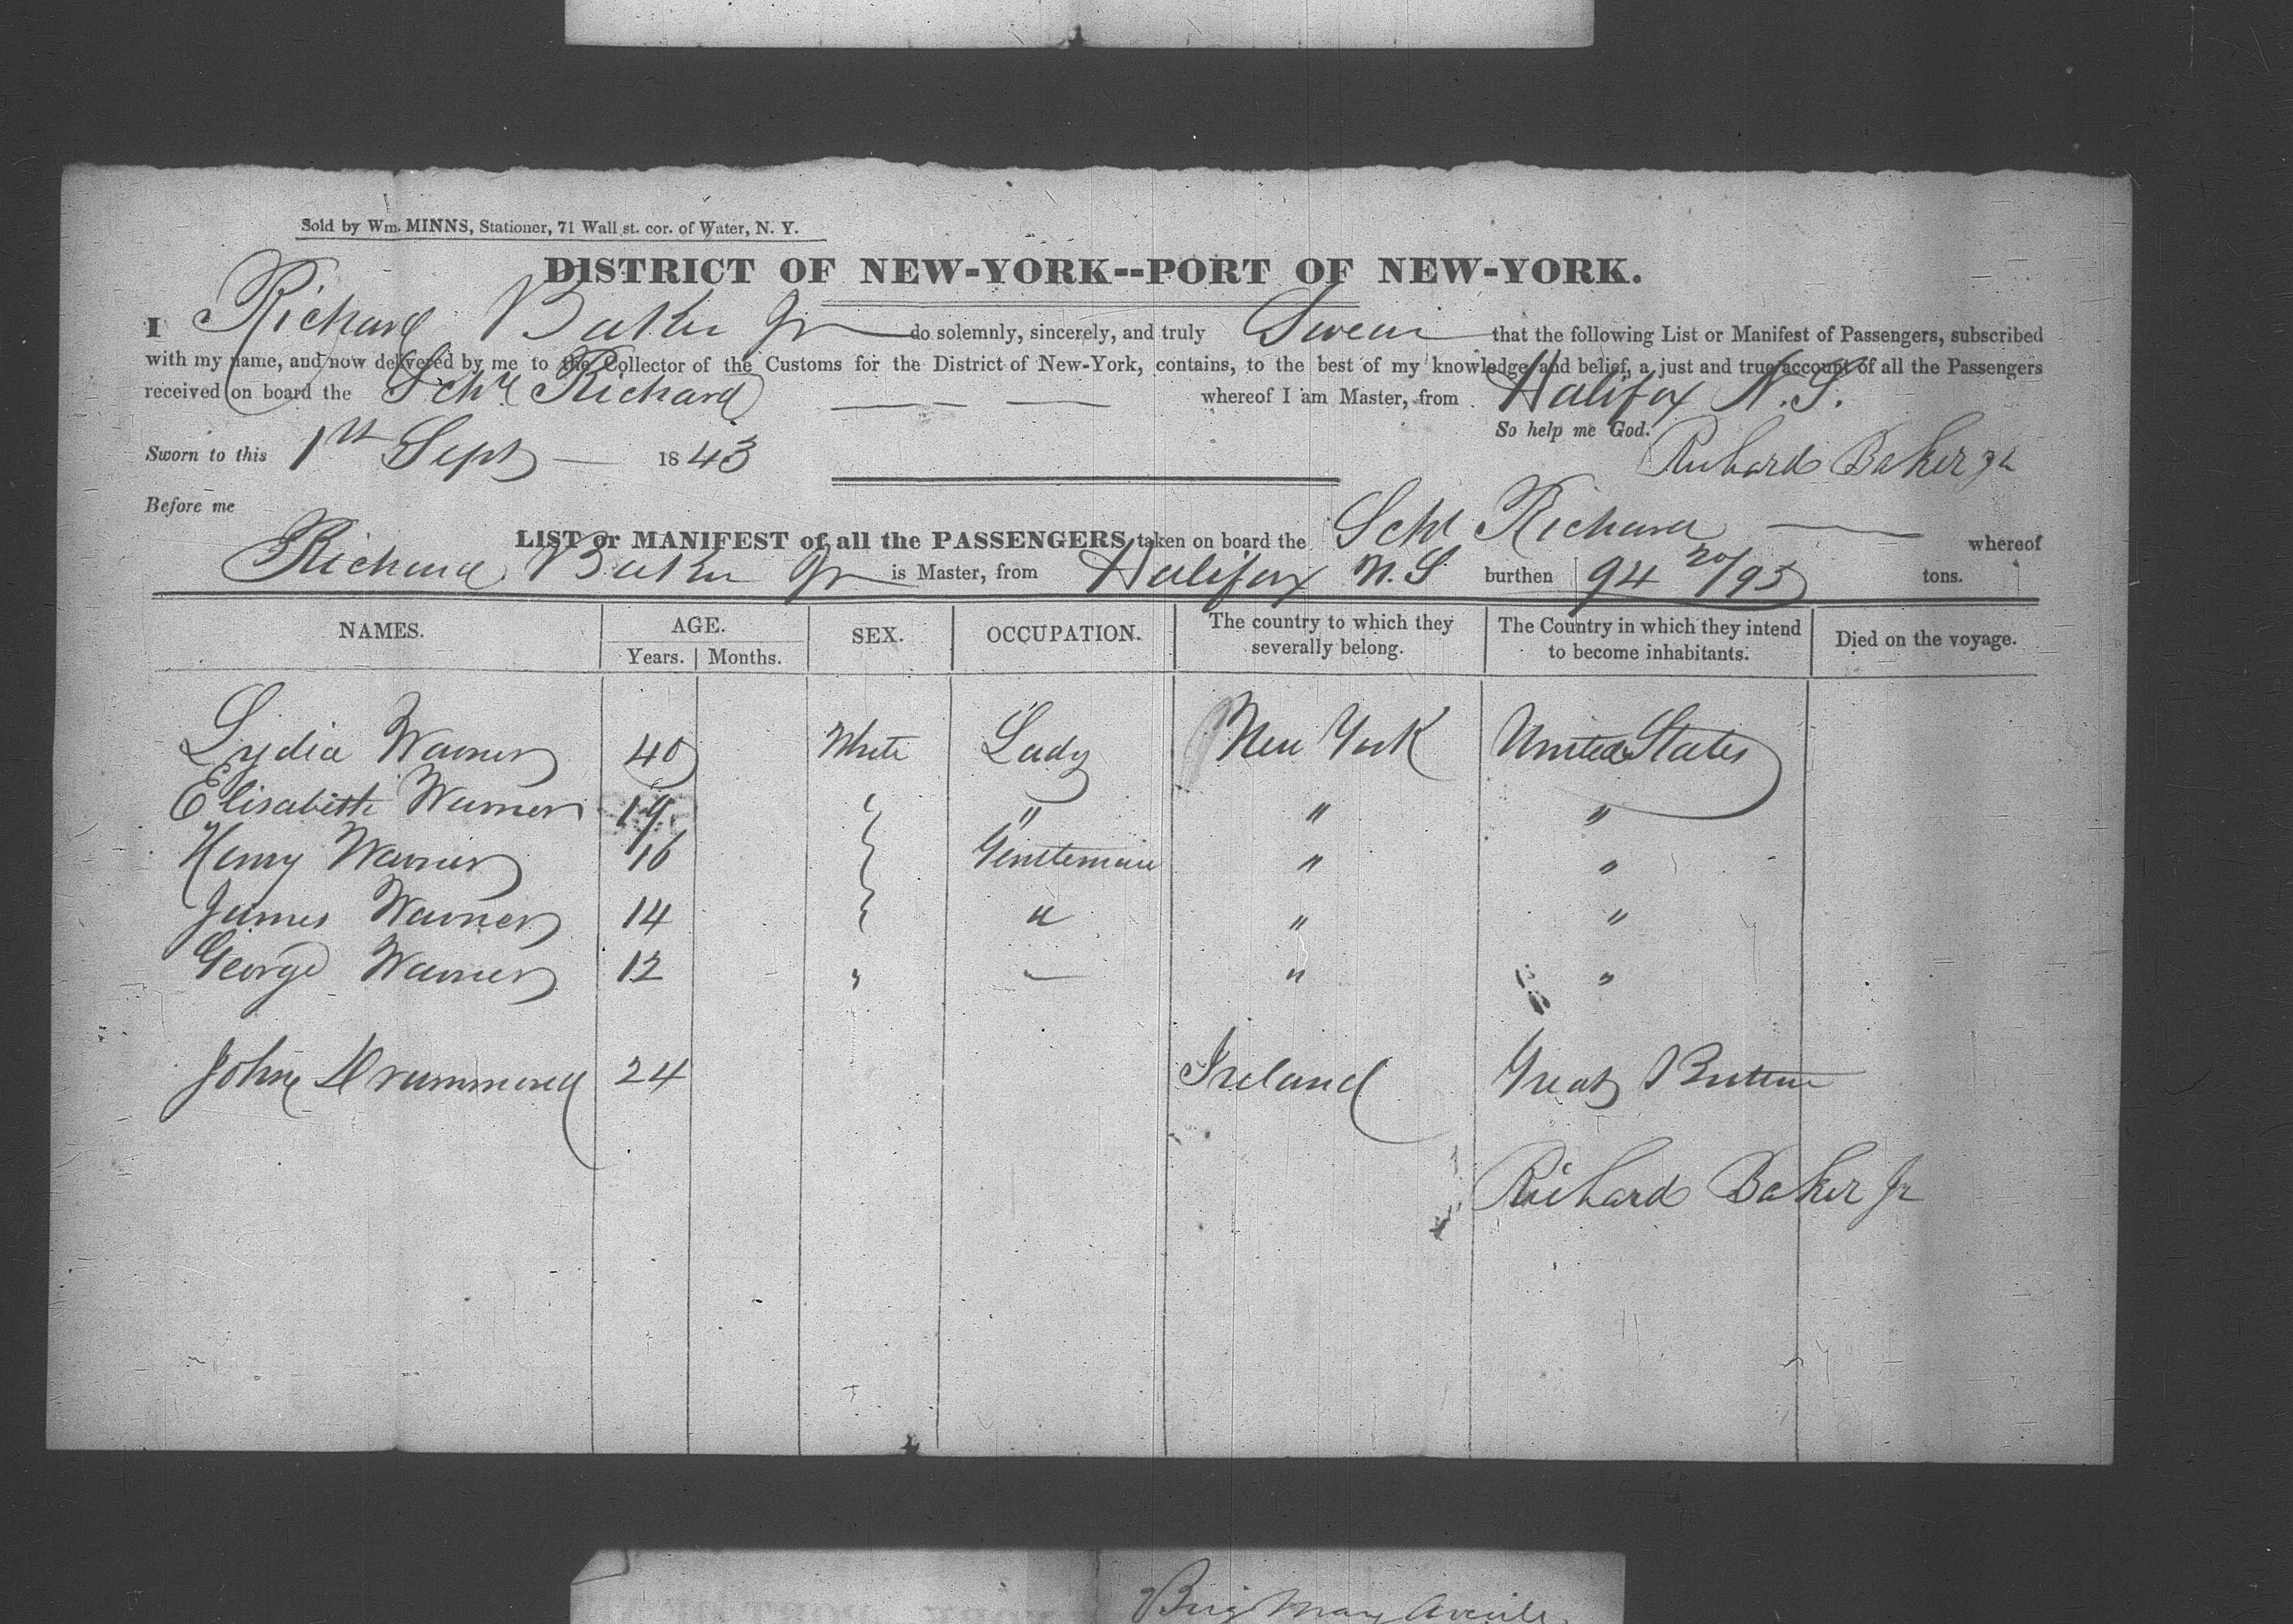 Sold by Wm. MINNS, Stationer, 71 Wall st. cor. of Water, N. Y.
DISTRICT OF NEW-YORK--PORT OF NEW-YORK.
I Richard Baker Jr do solemnly, sincerely, and truly Swear that the following List or Manifest of Passengers, subscribed
with my name, and now delivered by me to the Collector of the Customs for the District of New-York, contains, to the best of my knowledge and belief, a just and true account of all the Passengers
received on board the Schr Richard whereof I am Master, from Halifax N.S.
So help me God.
Sworn to this 1st Sept 1843 Richard Baker Jr
Before me
LIST or MANIFEST of all the PASSENGERS taken on board the Schr Richard whereof
Richard Baker Jr is Master, from Halifax N.S burthen 94 20/95 tons.
NAMES. AGE. SEX. OCCUPATION. The country to which they severally belong. The Country in which they intend to become inhabitants. Died on the voyage.
Years. Months.
Lydia Warner 40 White Lady New York United States
Elisabeth Warner " " "
Henry Warner 16 Gentleman " "
James Warner 14 " " "
George Warner 12 " — " "
John Drummond 24 Ireland Great Britain
Richard Baker Jr
Brig Mary